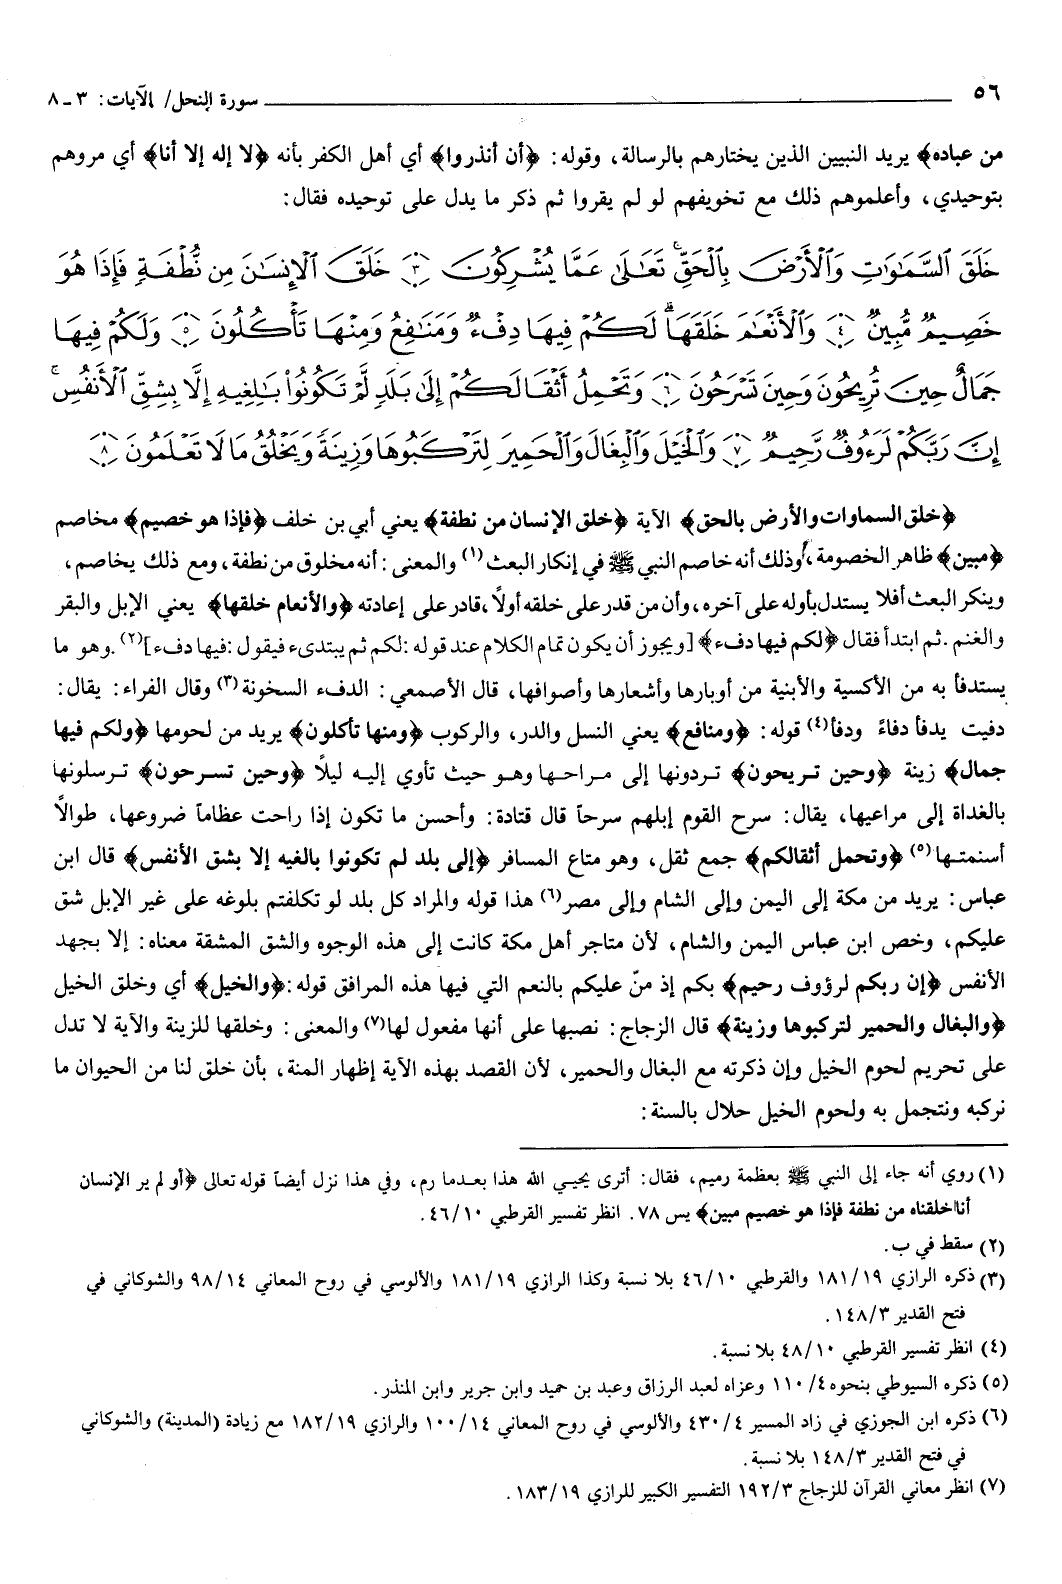 ٥٦ سورة النحل/ الآيات: ٣ ـ ٨
من عباده﴾ يريد النبيين الذين يختارهم بالرسالة، وقوله: ﴿أن أنذروا﴾ أي أهل الكفر بأنه ﴿لا إله إلا أنا﴾ أي مروهم
بتوحيدي، وأعلموهم ذلك مع تخويفهم لو لم يقروا ثم ذكر ما يدل على توحيده فقال:
خَلَقَ ٱلسَّمَٰوَٰتِ وَٱلْأَرْضَ بِٱلْحَقِّ ۚ تَعَٰلَىٰ عَمَّا يُشْرِكُونَ ﴿٣﴾ خَلَقَ ٱلْإِنسَٰنَ مِن نُّطْفَةٍ فَإِذَا هُوَ
خَصِيمٌ مُّبِينٌ ﴿٤﴾ وَٱلْأَنْعَٰمَ خَلَقَهَا ۗ لَكُمْ فِيهَا دِفْءٌ وَمَنَٰفِعُ وَمِنْهَا تَأْكُلُونَ ﴿٥﴾ وَلَكُمْ فِيهَا
جَمَالٌ حِينَ تُرِيحُونَ وَحِينَ تَسْرَحُونَ ﴿٦﴾ وَتَحْمِلُ أَثْقَالَكُمْ إِلَىٰ بَلَدٍ لَّمْ تَكُونُوا۟ بَٰلِغِيهِ إِلَّا بِشِقِّ ٱلْأَنفُسِ ۚ
إِنَّ رَبَّكُمْ لَرَءُوفٌ رَّحِيمٌ ﴿٧﴾ وَٱلْخَيْلَ وَٱلْبِغَالَ وَٱلْحَمِيرَ لِتَرْكَبُوهَا وَزِينَةً وَيَخْلُقُ مَا لَا تَعْلَمُونَ ﴿٨﴾
﴿خلق السماوات والأرض بالحق﴾ الآية ﴿خلق الإنسان من نطفة﴾ يعني أبي بن خلف ﴿فإذا هو خصيم﴾ مخاصم
﴿مبين﴾ ظاهر الخصومة، وذلك أنه خاصم النبي ﷺ في إنكار البعث(١) والمعنى: أنه مخلوق من نطفة، ومع ذلك يخاصم،
وينكر البعث أفلا يستدل بأوله على آخره، وأن من قدر على خلقه أولاً، قادر على إعادته ﴿والأنعام خلقها﴾ يعني الإبل والبقر
والغنم. ثم ابتدأ فقال ﴿لكم فيها دفء﴾ [ويجوز أن يكون تمام الكلام عند قوله: لكم ثم يبتدىء فيقول: فيها دفء](٢). وهو ما
يستدفأ به من الأكسية والأبنية من أوبارها وأشعارها وأصوافها، قال الأصمعي: الدفء السخونة(٣) وقال الفراء: يقال:
دفيت يدفأ دفاءً ودفأ(٤) قوله: ﴿ومنافع﴾ يعني النسل والدر، والركوب ﴿ومنها تأكلون﴾ يريد من لحومها ﴿ولكم فيها
جمال﴾ زينة ﴿وحين تريحون﴾ تردونها إلى مراحها وهو حيث تأوي إليه ليلاً ﴿وحين تسرحون﴾ ترسلونها
بالغداة إلى مراعيها، يقال: سرح القوم إبلهم سرحاً قال قتادة: وأحسن ما تكون إذا راحت عظاماً ضروعها، طوالاً
أسنمتها(٥) ﴿وتحمل أثقالكم﴾ جمع ثقل، وهو متاع المسافر ﴿إلى بلد لم تكونوا بالغيه إلا بشق الأنفس﴾ قال ابن
عباس: يريد من مكة إلى اليمن وإلى الشام وإلى مصر(٦) هذا قوله والمراد كل بلد لو تكلفتم بلوغه على غير الإبل شق
عليكم، وخص ابن عباس اليمن والشام، لأن متاجر أهل مكة كانت إلى هذه الوجوه والشق المشقة معناه: إلا بجهد
الأنفس ﴿إن ربكم لرؤوف رحيم﴾ بكم إذ منّ عليكم بالنعم التي فيها هذه المرافق قوله: ﴿والخيل﴾ أي وخلق الخيل
﴿والبغال والحمير لتركبوها وزينة﴾ قال الزجاج: نصبها على أنها مفعول لها(٧) والمعنى: وخلقها للزينة والآية لا تدل
على تحريم لحوم الخيل وإن ذكرته مع البغال والحمير، لأن القصد بهذه الآية إظهار المنة، بأن خلق لنا من الحيوان ما
نركبه ونتجمل به ولحوم الخيل حلال بالسنة:
(١) روي أنه جاء إلى النبي ﷺ بعظمة رميم، فقال: أترى يحيي الله هذا بعدما رم، وفي هذا نزل أيضاً قوله تعالى ﴿أو لم ير الإنسان
أنا خلقناه من نطفة فإذا هو خصيم مبين﴾ يس ٧٨. انظر تفسير القرطبي ٤٦/١٠.
(٢) سقط في ب.
(٣) ذكره الرازي ١٨١/١٩ والقرطبي ٤٦/١٠ بلا نسبة وكذا الرازي ١٨١/١٩ والألوسي في روح المعاني ٩٨/١٤ والشوكاني في
فتح القدير ١٤٨/٣.
(٤) انظر تفسير القرطبي ٤٨/١٠ بلا نسبة.
(٥) ذكره السيوطي بنحوه ١١٠/٤ وعزاه لعبد الرزاق وعبد بن حميد وابن جرير وابن المنذر.
(٦) ذكره ابن الجوزي في زاد المسير ٤٣٠/٤ والألوسي في روح المعاني ١٠٠/١٤ والرازي ١٨٢/١٩ مع زيادة (المدينة) والشوكاني
في فتح القدير ١٤٨/٣ بلا نسبة.
(٧) انظر معاني القرآن للزجاج ١٩٢/٣ التفسير الكبير للرازي ١٨٣/١٩.